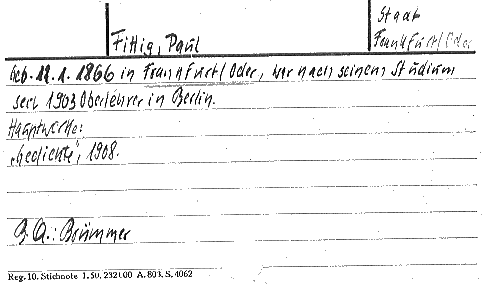 Staat
Fittig, Paul
Frankfurt/Oder
Geb. 12.1.1866 in Frankfurt/Oder, war nach seinem Studium
seit 1903 Oberlehrer in Berlin.
Hauptwerke:
„Gedichte", 1908.
Q.A.: Brümmer
Reg. 10. Stichnote 1. 50. 232100 A. 803. S. 4062